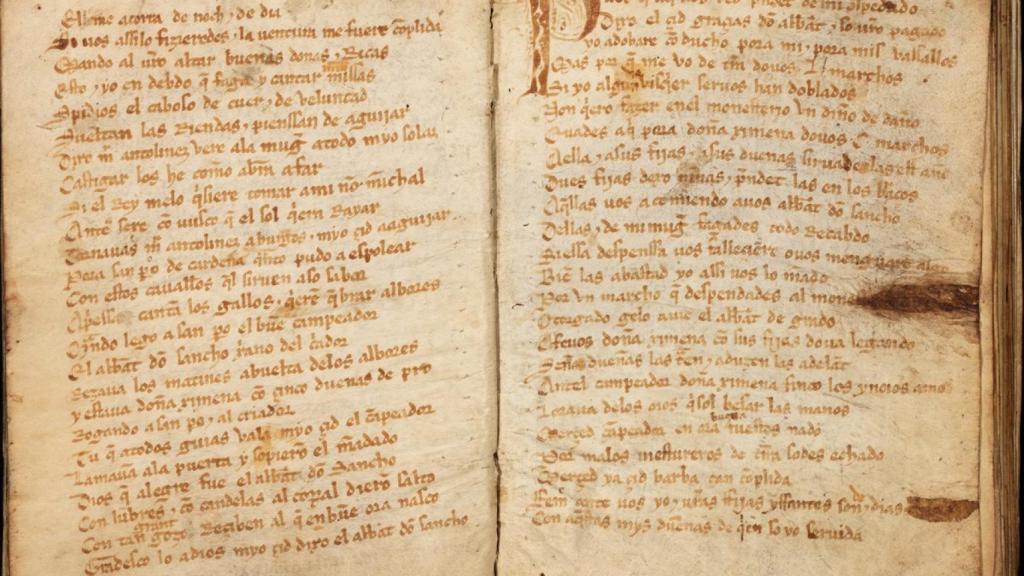 Ella me acorra de noch ⁊ de dia
Si uos assilo fizieredes ⁊ la ventura me fuere cōplida
Mando al uro altar buenas donas ⁊ Ricas
Esto ⁊ yo en debdo q̄ faga y cantar missas
Spidios el caboso de cuer ⁊ de veluntad
Sueltan las Riendas ⁊ pienssan de aguijar
Dixo mr̄ antolinez vere ala mugr̄ atodo myo solaz
Castigar los he cōmo abrā a far
Si el Rey melo q̇siere tomar ami nō minchal
Antes sere cō uusco q̄ el sol q̇era Rayar
Tornauas mr̄ antolinez a burgos ⁊ myo çid aaguijar
Pora san p̄o de cardeña q̄nto pudo a espolear
Con estos cauallos q̇l siruen aso sabor
Apriessa cantā los gallos ⁊ q̇erē q̄brar albores
Qn̄do lego a san p̄o el buē campeador
El abbat dō sancho xr̄ano del c̄ador
Rezaua los matines abuelta delos albores
y estaua doña ximena cō çinco duenas de pro
Rogando a san p̄o ⁊ al criador
Tu q̄ atodos guias val a myo çid el cāpeador
Lamauā ala puerta y sopierō el mādado
Dios q̄ alegre fue el abbat dō Sancho
Con lūbres ⁊ cō candelas al corral dierō salto
Con tan grant gozo Reçiben al q̄ en buē ora nasco
Gradesco lo adios myo çid dixo el abbat dō sancho
Pues q̄ aqui uos veo p̄ndet de mi ospedado
Dixo el çid graçias dō abbat ⁊ so uro pagado
yo adobare cō ducho pora mi ⁊ pora mis vassallos
Mas por q̄ me vo de tr̄a douos L marchos
Si yo algun visq̇er seruos han doblados
Non q̇ero fazer enel monesterio vn diño de daño
Euades aq̇ pora doña ximena douos C marchos
A ella ⁊ asus fijas ⁊ asus duenas siruades las est año
Dues fijas dexo niñas ⁊ p̄ndet las en los braços
Aq̄llas uos acomiendo auos abbat dō sancho
Dellas ⁊ de mi mugr̄ fagades todo Recabdo
Si essa despenssa uos falleçiere o uos menguare algo
Biē las abastad yo assi uos lo mādo
Por vn marcho q̄ despendades al mone
Otorgado gelo auie el abbat de grado
Afeuos doña ximena cō sus fijas do ua legando
Señas dueñas las traen ⁊ aduzen las adelāt
Antel campeador doña ximena finco los ynoios amos
Loraua delos oios q̇sol besar las manos
Merçed cāpeador en ora buena fuestes nado
Por malos mestureros de tr̄a sodes echado
Merçed ya çid barba tan cōplida
Fem ante uos yo ⁊ uras ffijas yffantes son ⁊ de dias
Con aq̄stas mys dueñas de q̇en so yo seruida